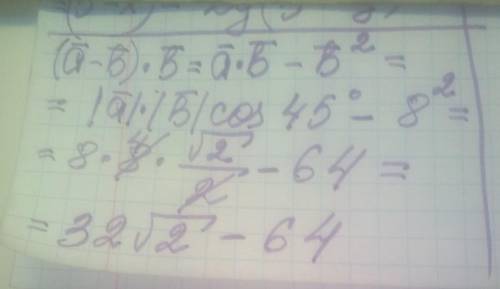 (ā-b̄)·b̄=ā·b̄-b̄²=
=|ā|·|b̄|cos 45°-8²=
=8·8·√2/2-64=
=32√2-64